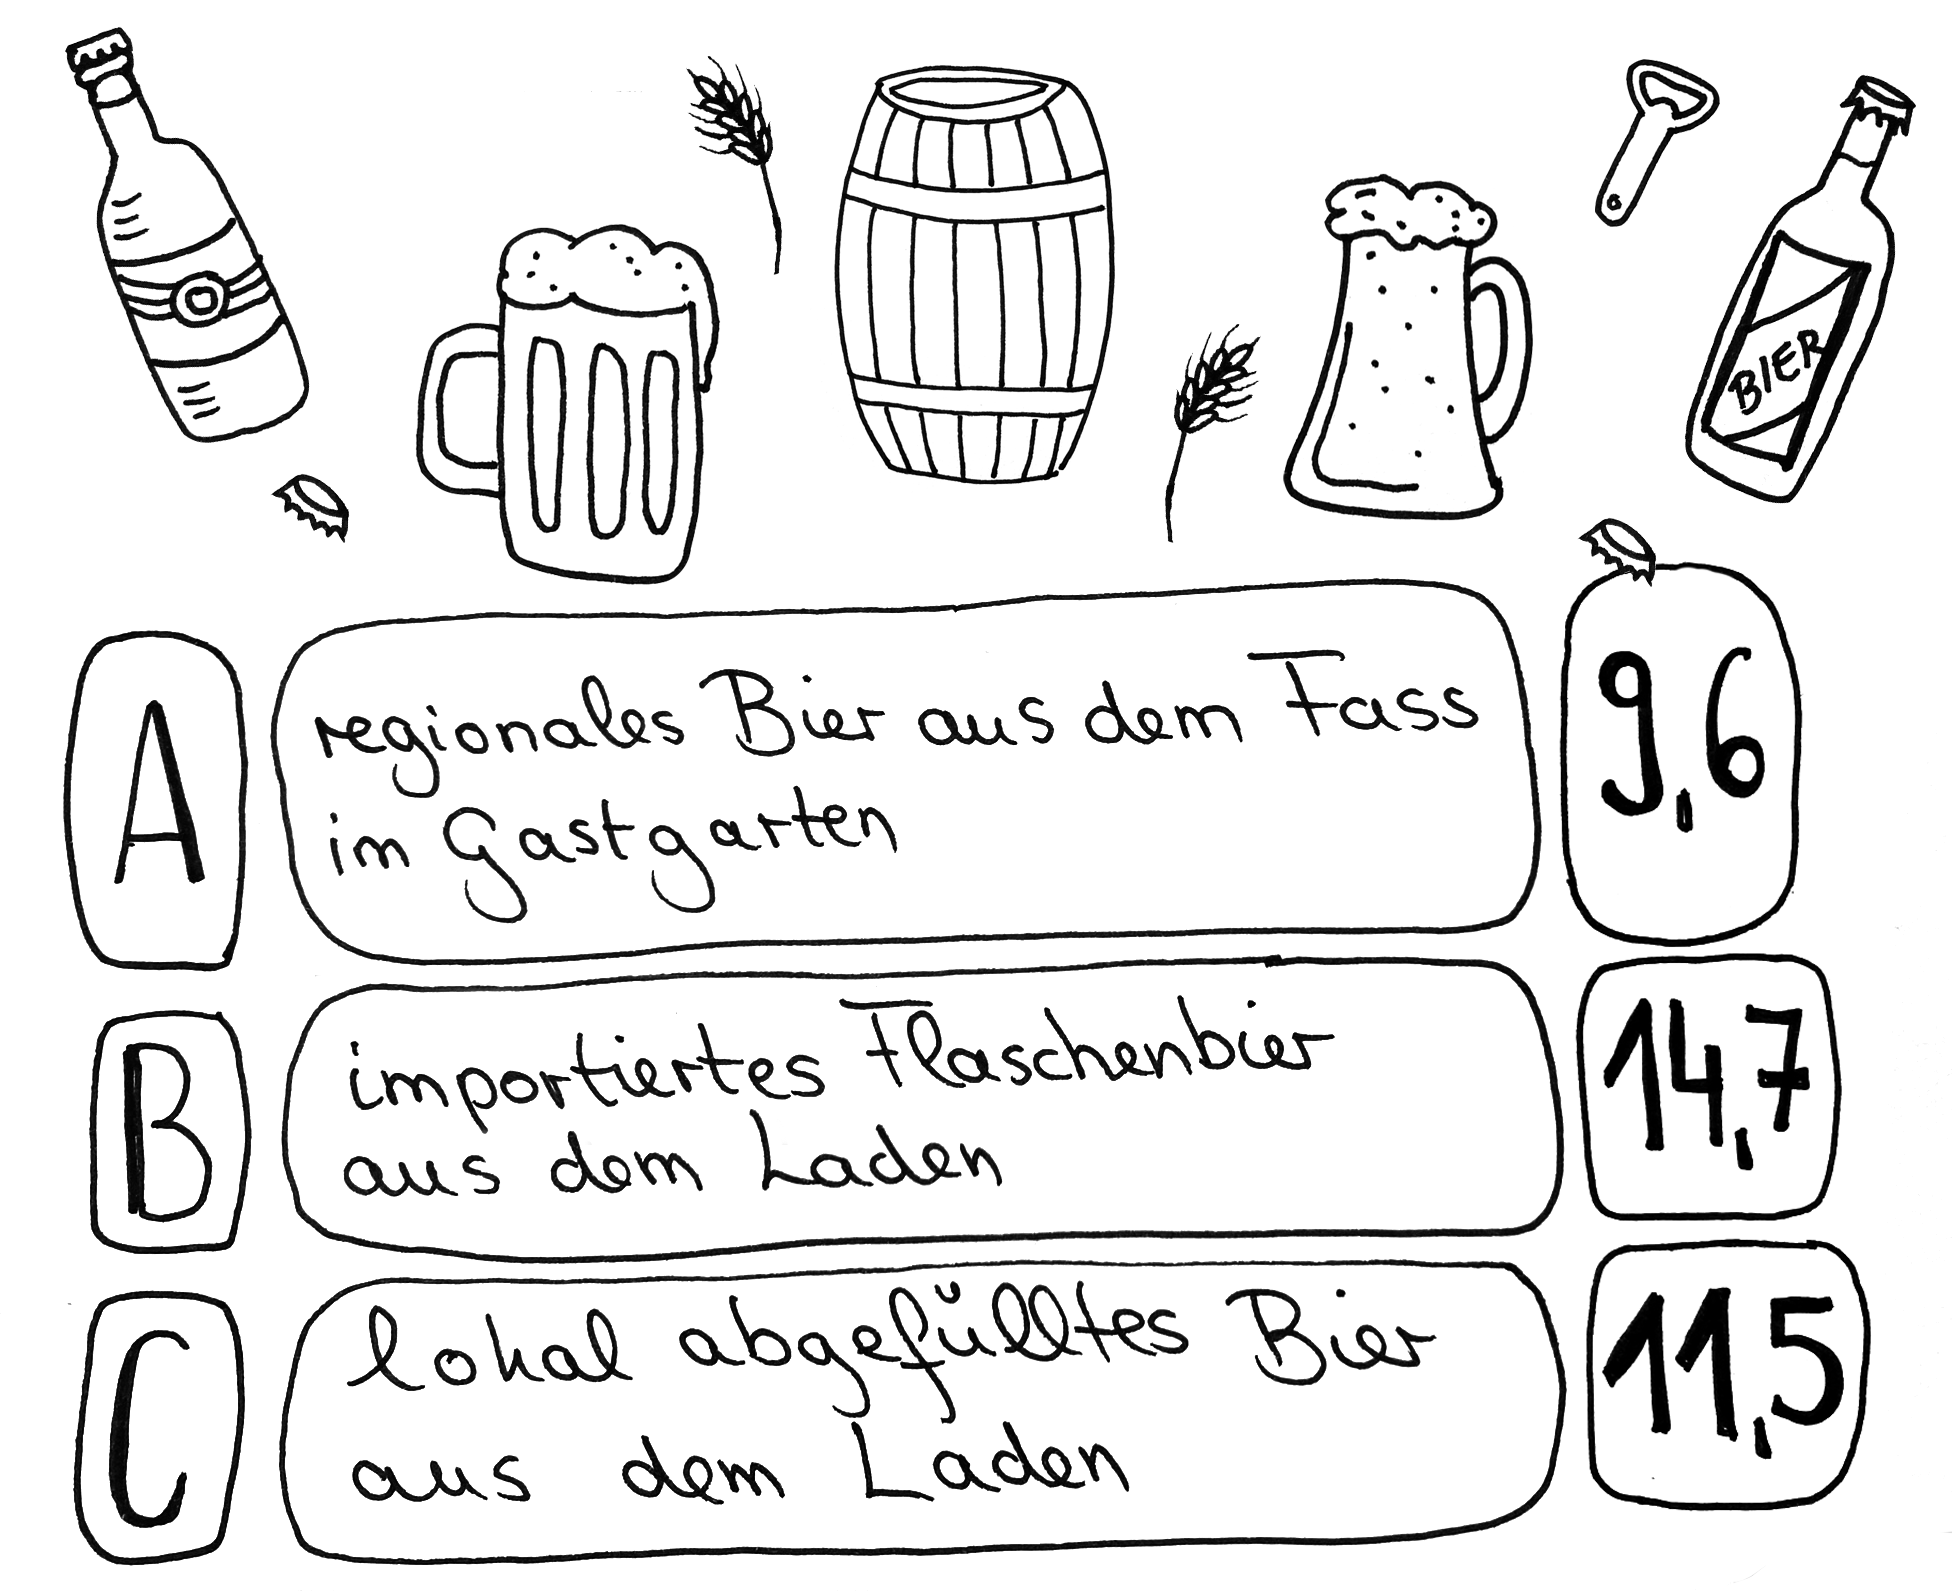 BIER
A
regionales Bier aus dem Fass
im Gastgarten
9,6
B
importiertes Flaschenbier
aus dem Laden
14,7
C
lokal abgefülltes Bier
aus dem Laden
11,5